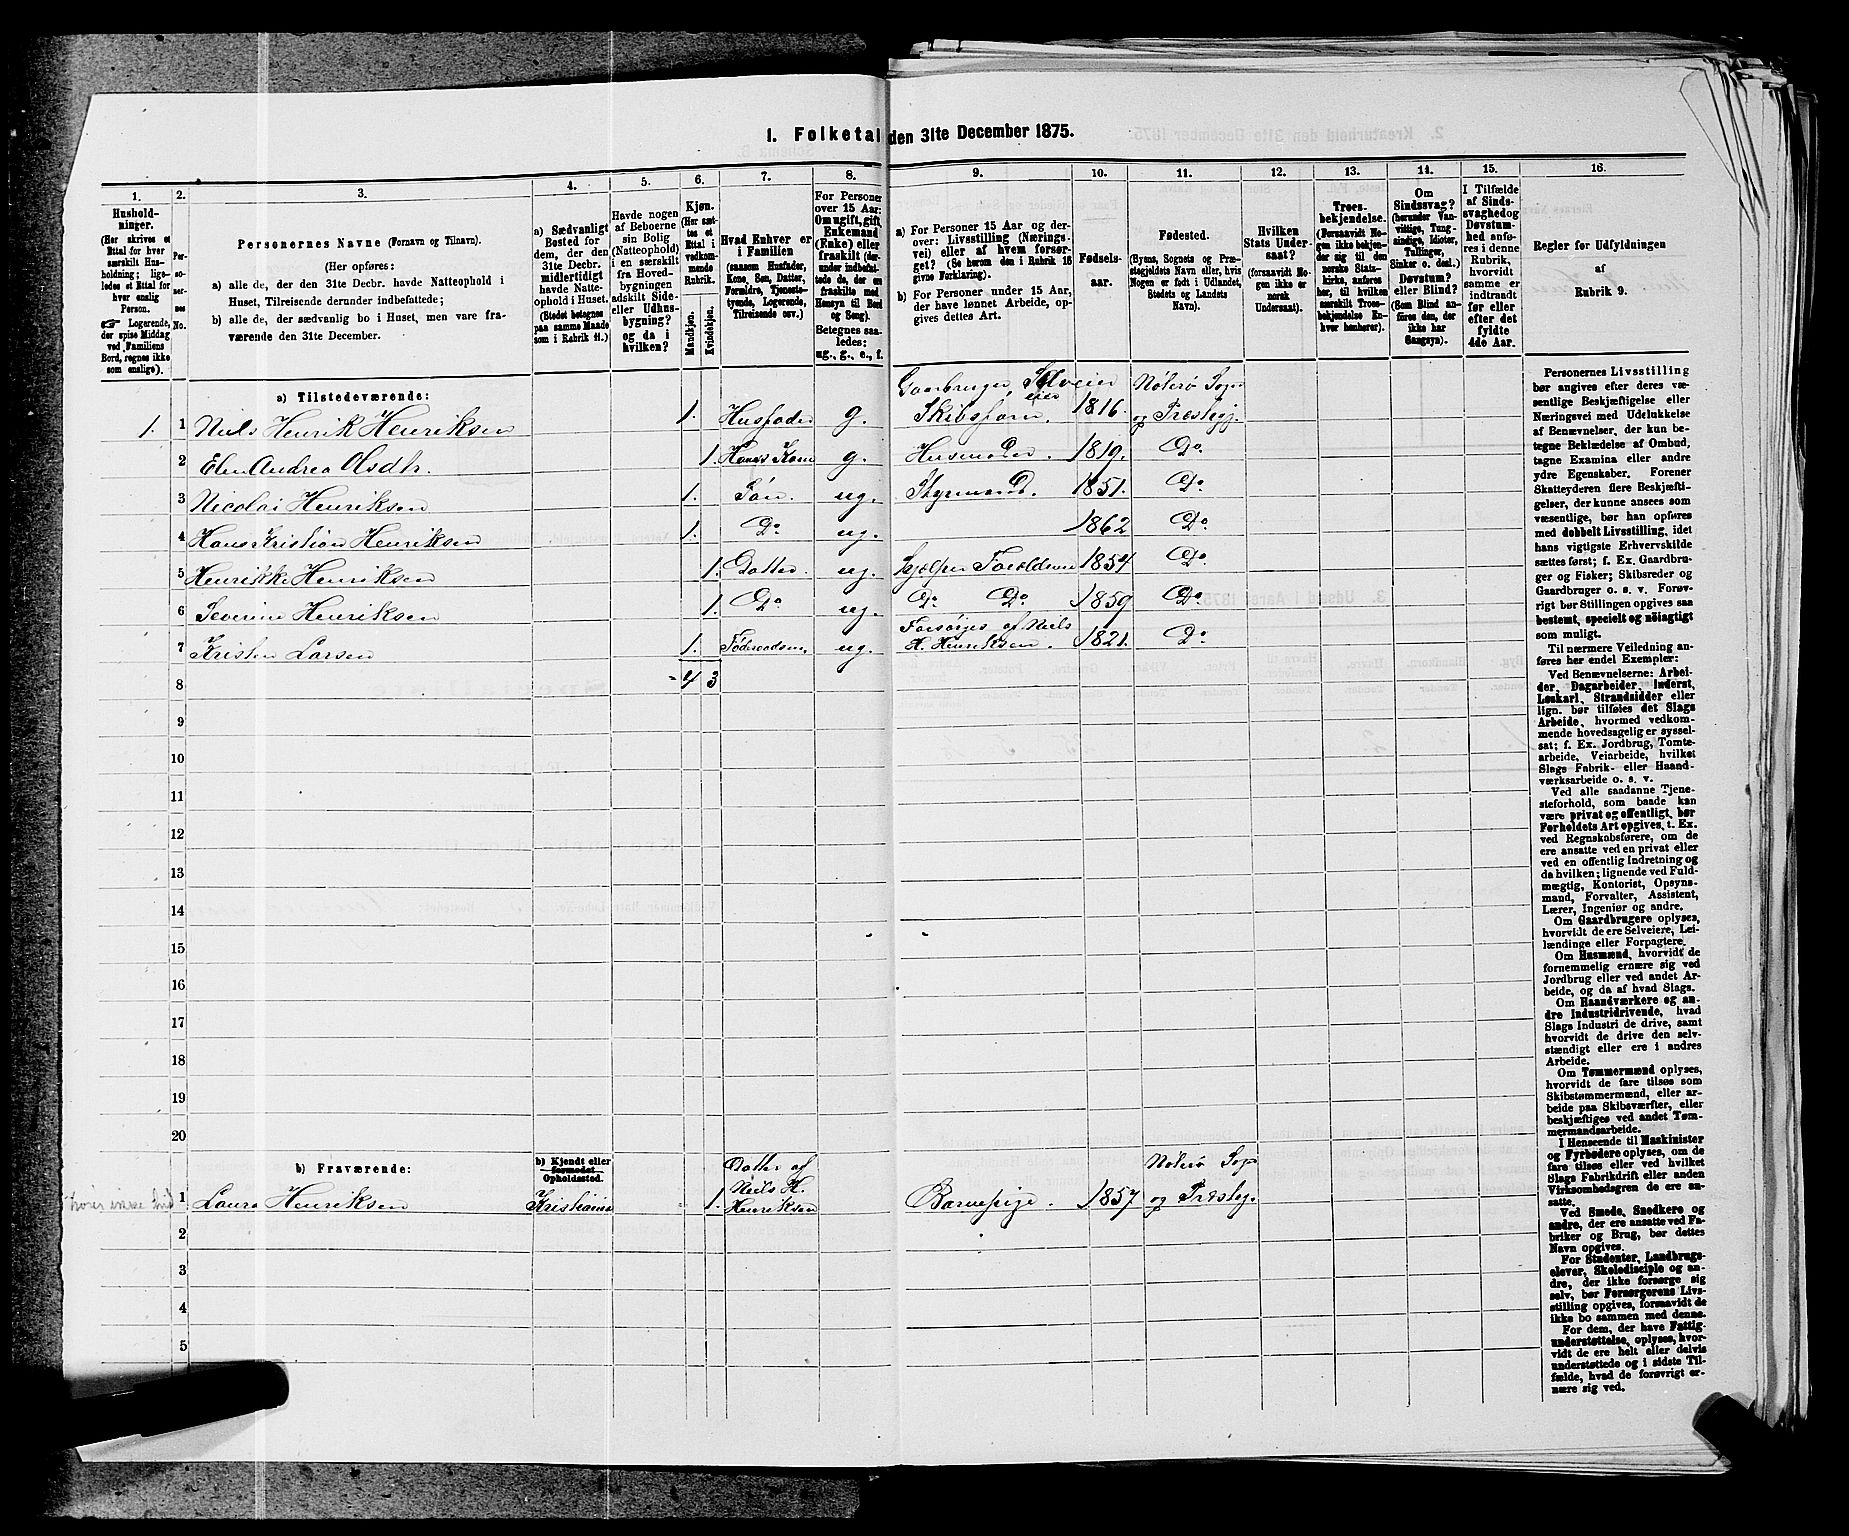 1. Folketal den 31te December 1875.
1. 2. 3. 4. 5. 6. 7. 8. 9. 10. 11. 12. 13. 14. 15. 16.
Hushold-
ninger.
(Her skrives et
Ettal for hver
særskilt Hus-
holdning; lige-
ledes et Ettal for
hver enslig
Person.
☞ Logerende,
der spise Middag
ved Familiens
Bord, regnes ikke
som enslige).
Per-
so-
ner-
nes
No.
Personernes Navne (Fornavn og Tilnavn).
(Her opføres:
a) alle de, der den 31te Decbr. havde Natteophold i
Huset, Tilreisende derunder indbefattede;
b) alle de, der sædvanlig bo i Huset, men vare fra-
værende den 31te December.
a) Sædvanligt
Bosted for
dem, der den
31te Decbr.
midlertidigt
havde Natte-
ophold i Huset.
(Stedet betegnes
paa samme Maade
som i Rubrik 11.)
Havde nogen
af Beboerne
sin Bolig
(Natteophold)
i en særskilt
fra Hoved-
bygningen
adskilt Side-
eller Udhus-
bygning?
og da i
hvilken?
Kjøn.
(Her sæt-
tes et
Ettal i
vedkom-
mende
Rubrik.
Mandkjøn.
Kvindekjøn.
Hvad Enhver er
i Familien
(saasom Husfader,
Kone, Søn, Datter,
Forældre, Tjeneste-
tyende, Logerende,
Tilreisende osv.)
For Personer
over 15 Aar:
Om ugift, gift
Enkemand
(Enke) eller
fraskilt (der-
under indbefat-
tede de, der ere
fraskilte med
Hensyn til Bord
og Seng).
Betegnes saa-
ledes:
ug., g., e., f.
a) For Personer 15 Aar og der-
over: Livsstilling (Nærings-
vei) eller af hvem forsør-
get? (Se herom den i Rubrik 16
givne Forklaring).
b) For Personer under 15 Aar,
der have lønnet Arbeide, op-
gives dettes Art.
Fødsels-
aar.
Fødested.
(Byens, Sognets og Præ-
stegjeldets Navn eller, hvis
Nogen er født i Udlandet,
Stedets og Landets
Navn).
Hvilken
Stats Under-
saat?
(forsaavidt No-
gen ikke er
norsk
Undersaat).
Troes-
bekjendelse.
(Forsaavidt No-
gen ikke bekjen-
der sig til den
norske Stats-
kirke, anføres
her, til hvilken
særskilt Troes-
bekjendelse En-
hver henhører).
Om
Sindssvag?
(herunder Van-
vittige, Tung-
sindige, Idioter,
Tullinger,
Sinker o. desl.)
Døvstum?
eller Blind?
(Som Blind an-
føres den, der
ikke har
Gangsyn).
I Tilfælde
af Sinds-
svaghed og
Døvstum-
hed anfø-
res i denne
Rubrik,
hvorvidt
samme er
indtraadt
før eller
efter det
fyldte
4de Aar.
Regler for Udfyldningen
af
Rubrik 9.
a) Tilstedeværende:
Gaardbruger Selveier
eier
Nøterø Sogn
1. 1 Niels Henrik Henriksen 1. Husfader g. Skibsfører. 1816. og Præstegj.
2 Elen Andrea Olsdtr. 1. Hans Kone g. Husmoder. 1819. Do.
3 Nicolai Henriksen 1. Søn. ug. Styrmand. 1851. Do
4 Hans Kristian Henriksen 1. Do ug. 1862 Do
5 Henrikke Henriksen 1. Datter. ug. Hjælper Forældrene 1854 Do
6 Severine Henriksen 1. Do ug. Do Do 1859 Do
Forsørges af Niels
7 Kristen Larsen 1. Føderaadsm. ug. H. Henriksen. 1821. Do
8 4 3
9
10
11
12
13
14
15
16
17
18
19
20
b) Fraværende:
b) Kjendt eller
formodet
Opholdssted.
Datter af
Niels H.
Henriksen
Nøterø Sogn
1 Laura Henriksen Kristiania 1. Barnepige. 1857 og Præsteg.
2
3
4
5
Personernes Livsstilling
bør angives efter deres væ-
sentlige Beskjæftigelse eller
Næringsvei med Udelukkelse
af Benævnelser, der kun be-
tegne Beklædelse af Ombud,
tagne Examina eller andre
ydre Egenskaber. Forener
Skatteyderen flere Beskjæfti-
gelser, der kunne ansees som
væsentlige, bør han opføres
med dobbelt Livsstilling, idet
hans vigtigste Erhvervskilde
sættes først; f. Ex. Gaardbru-
ger og Fisker; Skibsreder og
Gaardbruger o. s. v. Forøv-
rigt bør Stillingen opgives saa
bestemt, specielt og nøiagtigt
som muligt.
Til nærmere Veiledning an-
føres her endel Exempler:
Ved Benævnelserne: Arbei-
der, Dagarbeider, Inderst,
Løskarl, Strandsidder eller
lign. bør tilføies det Slags
Arbeide, hvormed vedkom-
mende hovedsagelig er syssel-
sat; f. Ex. Jordbrug, Tomte-
arbeide, Veiarbeide, hvilket
Slags Fabrik- eller Haand-
værksarbeide o. s. v.
Ved alle saadanne Tjene-
steforhold, som baade kan
være privat og offentligt, bør
Forholdets Art opgives, t. Ex.
ved Regnskabsførere, om de
ere ansatte ved en privat eller
ved en offentlig Indretning og
da hvilken; lignende ved Fuld-
mægtig, Kontorist, Opsyns-
mand, Forvalter, Assistent,
Lærer, Ingeniør og andre.
Om Gaardbrugere oplyses,
hvorvidt de ere Selveiere, Lei-
lændinge eller Forpagtere.
Om Husmænd, hvorvidt de
fornemmelig ernære sig ved
Jordbrug eller ved andet Ar-
beide, og da af hvad Slags.
Om Haandværkere og an-
dre Industridrivende, hvad
Slags Industri de drive, samt
hvorvidt de drive den selv-
stændigt eller ere i andres
Arbeide.
Om Tømmermænd oplyses,
hvorvidt de fare tilsøs som
Skibstømmermænd, eller ar-
beide paa Skibsværfter, eller
beskjæftiges ved andet Tøm-
mermandsarbeide.
I Henseende til Maskinister
og Fyrbødere oplyses, om de
fare tilsøs eller ved hvilket
Slags Fabrikdrift eller anden
Virksomhedsgren de ere an-
satte.
Ved Smede, Snedkere og
andre, der ere ansatte ved Fa-
briker og Brug, bør dettes
Navn opgives.
For Studenter, Landbrugs-
elever, Skoledisciple og an-
dre, der ikke forsørge sig
selv, bør Forsørgerens Livs-
stilling opgives, forsaavidt de
ikke bo sammen med denne.
For dem, der have Fattig-
understøttelse, oplyses, hvor-
vidt de ere helt eller delvis
understøttede og i sidste Til-
fælde, hvad de forøvrigt er-
nære sig ved.